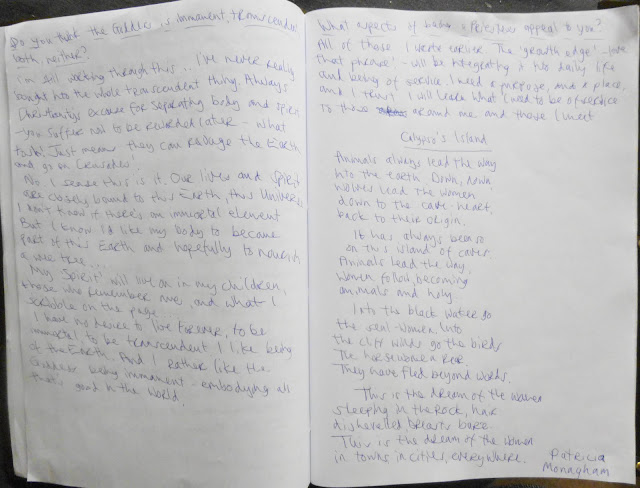 Do you think the Goddess is immanent, transcendent
both, neither?
I'm still working through this... I've never really
bought into the whole transcendent thing. Always
Christianity's excuse for separating body and spirit
- you suffer now to be rewarded later - what
tosh! Just means they can ravage the Earth
and go on Crusades!
No. I sense this is it. Our lives and spirit
are closely bound to this Earth, this Universe
I don't know if there's an immortal element
But I know I'd like my body to become
part of this Earth and hopefully to nourish
a wee tree...
My 'Spirit' will live on in my children,
those who remember me, and what I
scribble on the page...
I have no desire to live forever, to be
immortal, to be transcendent. I like being
of the Earth. And I rather like the
Goddess being immanent - embodying all
that's good in the world.
What aspects of being a Priestess appeal to you?
All of those I wrote earlier. The 'growth edge' - love
that phrase! - will be integrating it into daily life
and being of service. I need a purpose, and a place,
and I trust I will learn what I need to be of service
to those around me and those I meet
Calypso's Island
Animals always lead the way
into the earth. Down, down
wolves lead the women
down to the cave-heart,
back to their origin.
It has always been so
on this island of caves.
Animals lead the way,
women follow, becoming
animals and holy.
Into the black water go
the seal-women. Into
the cliff winds go the birds
The horsewomen rear.
They have fled beyond words.
This is the dream of the women
sleeping in the rock, hair
dishevelled, breasts bare.
This is the dream of the women
in towns, in cities, everywhere.
Patricia
Monagham